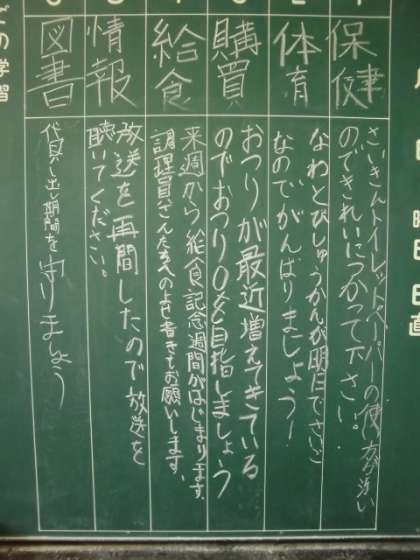 月 日 曜日 日直
保健
さいきんトイレットペーパーの使方が汚い
のできれいにつかって下さい。
体育
なわとびしゅうかんが明日でさいご
なのでがんばりましょう!
購買
おつりが最近増えてきている
のでおつり0を目指しましょう
給食
来週から給食記念週間がはじまります。
調理員さんたちへのよせ書きをお願いします。
情報
放送を再開したので放送を
聴いてください。
図書
貸し出し期間を守りましょう
での学習